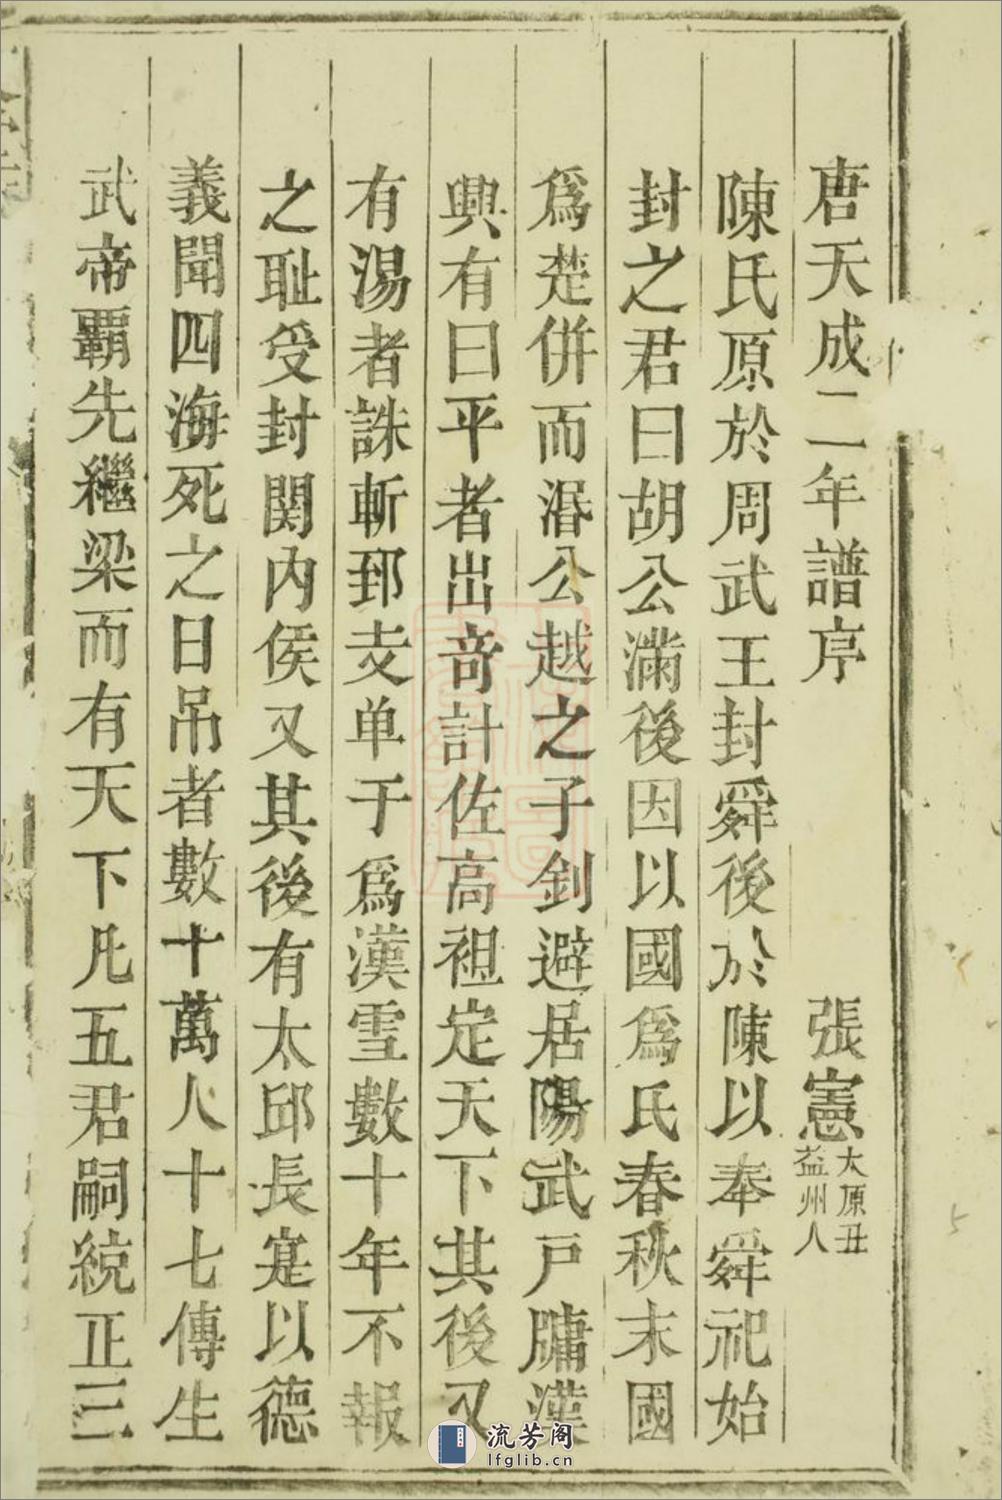 唐天成二年譜序　張憲大原丑益州人
陳氏原於周武王封舜後於陳以奉舜祀始
封之君曰胡公滿後因以國爲氏春秋末國
爲楚併而湣公越之子釗避居陽武戸牖漢
興有曰平者出竒計佐高祖定天下其後又
有湯者誅斬郅支单于爲漢雪數十年不報
之耻受封関内侯又其後有太邱長寔以德
義聞四海死之日吊者數十萬人十七傳生
武帝覇先繼梁而有天下凡五君嗣統正三
流芳阁
lfglib.cn